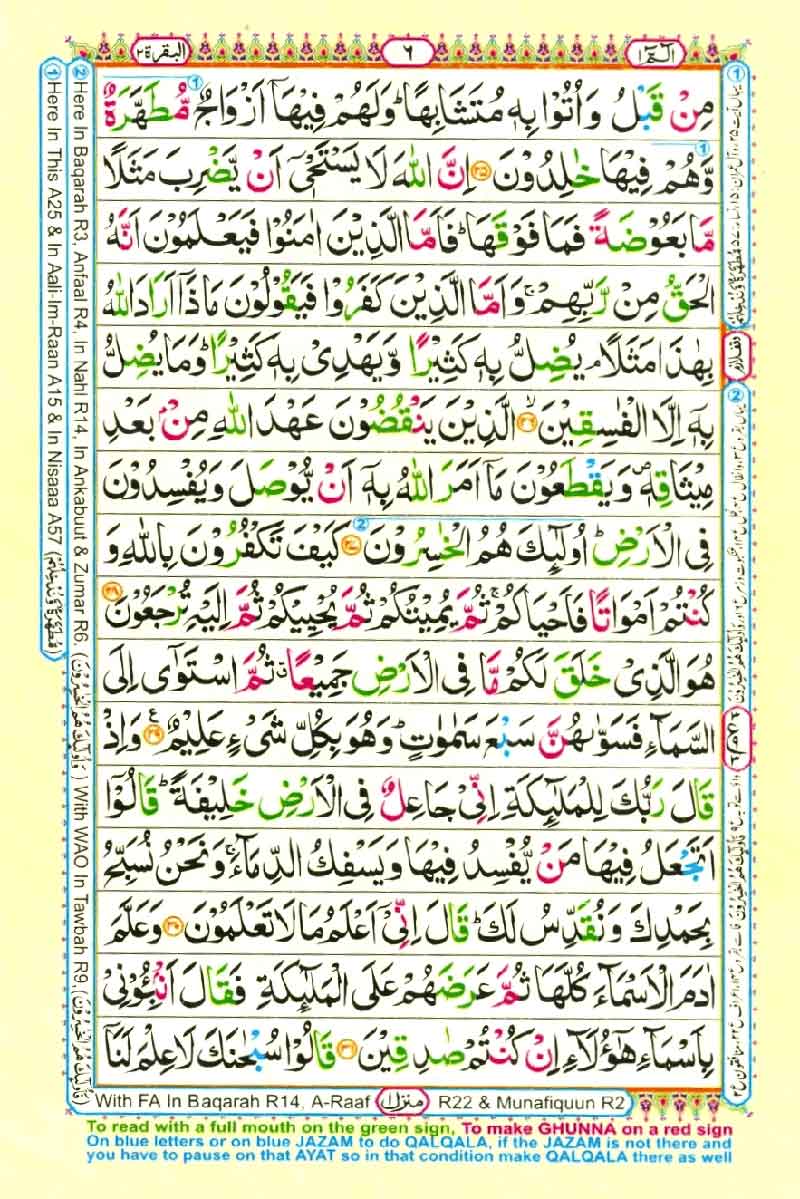 البقرة ٢
٦
الٓمّٓ ١
مِنْ قَبْلُ ۙ وَاُتُوْا بِهٖ مُتَشَابِهًا ؕ وَلَهُمْ فِيْهَاۤ اَزْوَاجٌ مُّطَهَّرَةٌ
وَّهُمْ فِيْهَا خٰلِدُوْنَ ۝۲۵ اِنَّ اللّٰهَ لَا يَسْتَحْيٖۤ اَنْ يَّضْرِبَ مَثَلًا
مَّا بَعُوْضَةً فَمَا فَوْقَهَا ؕ فَاَمَّا الَّذِيْنَ اٰمَنُوْا فَيَعْلَمُوْنَ اَنَّهُ
الْحَقُّ مِنْ رَّبِّهِمْ ۚ وَاَمَّا الَّذِيْنَ كَفَرُوْا فَيَقُوْلُوْنَ مَاذَاۤ اَرَادَ اللّٰهُ
بِهٰذَا مَثَلًا ۘ يُضِلُّ بِهٖ كَثِيْرًا وَّيَهْدِيْ بِهٖ كَثِيْرًا ؕ وَمَا يُضِلُّ
بِهٖۤ اِلَّا الْفٰسِقِيْنَ ۝۲۶ۙ الَّذِيْنَ يَنْقُضُوْنَ عَهْدَ اللّٰهِ مِنْۢ بَعْدِ
مِيْثَاقِهٖ ۪ وَيَقْطَعُوْنَ مَاۤ اَمَرَ اللّٰهُ بِهٖۤ اَنْ يُّوْصَلَ وَيُفْسِدُوْنَ
فِى الْاَرْضِ ؕ اُولٰٓئِكَ هُمُ الْخٰسِرُوْنَ ۝۲۷ كَيْفَ تَكْفُرُوْنَ بِاللّٰهِ وَ
كُنْتُمْ اَمْوَاتًا فَاَحْيَاكُمْ ۚ ثُمَّ يُمِيْتُكُمْ ثُمَّ يُحْيِيْكُمْ ثُمَّ اِلَيْهِ تُرْجَعُوْنَ ۝۲۸
هُوَ الَّذِيْ خَلَقَ لَكُمْ مَّا فِى الْاَرْضِ جَمِيْعًا ۗ ثُمَّ اسْتَوٰۤى اِلَى
السَّمَآءِ فَسَوّٰىهُنَّ سَبْعَ سَمٰوٰتٍ ؕ وَهُوَ بِكُلِّ شَيْءٍ عَلِيْمٌ ۝۲۹ وَاِذْ
قَالَ رَبُّكَ لِلْمَلٰٓئِكَةِ اِنِّيْ جَاعِلٌ فِى الْاَرْضِ خَلِيْفَةً ؕ قَالُوْۤا
اَتَجْعَلُ فِيْهَا مَنْ يُّفْسِدُ فِيْهَا وَيَسْفِكُ الدِّمَآءَ ۚ وَنَحْنُ نُسَبِّحُ
بِحَمْدِكَ وَنُقَدِّسُ لَكَ ؕ قَالَ اِنِّيْۤ اَعْلَمُ مَا لَا تَعْلَمُوْنَ ۝۳۰ وَعَلَّمَ
اٰدَمَ الْاَسْمَآءَ كُلَّهَا ثُمَّ عَرَضَهُمْ عَلَى الْمَلٰٓئِكَةِ ۙ فَقَالَ اَنْۢبِـُٔوْنِيْ
بِاَسْمَآءِ هٰۤؤُلَآءِ اِنْ كُنْتُمْ صٰدِقِيْنَ ۝۳۱ قَالُوْا سُبْحٰنَكَ لَا عِلْمَ لَنَاۤ
① Here In This A25 & In Aali-Im-Raan A15 & In Nisaaa A57 (مُّطَهَّرَةٌ وَّنُدْخِلُهُمْ)
② Here In Baqarah R3, Anfaal R4, In Nahl R14, In Ankabuut & Zumar R6, (وَاُولٰٓئِكَ هُمُ الْخٰسِرُوْنَ) With WAO In Tawbah R9, (فَاُولٰٓئِكَ هُمُ الْخٰسِرُوْنَ)
With FA In Baqarah R14, A-Raaf منزل ١ R22 & Munafiquun R2
To read with a full mouth on the green sign, To make GHUNNA on a red sign
On blue letters or on blue JAZAM to do QALQALA, if the JAZAM is not there and
you have to pause on that AYAT so in that condition make QALQALA there as well